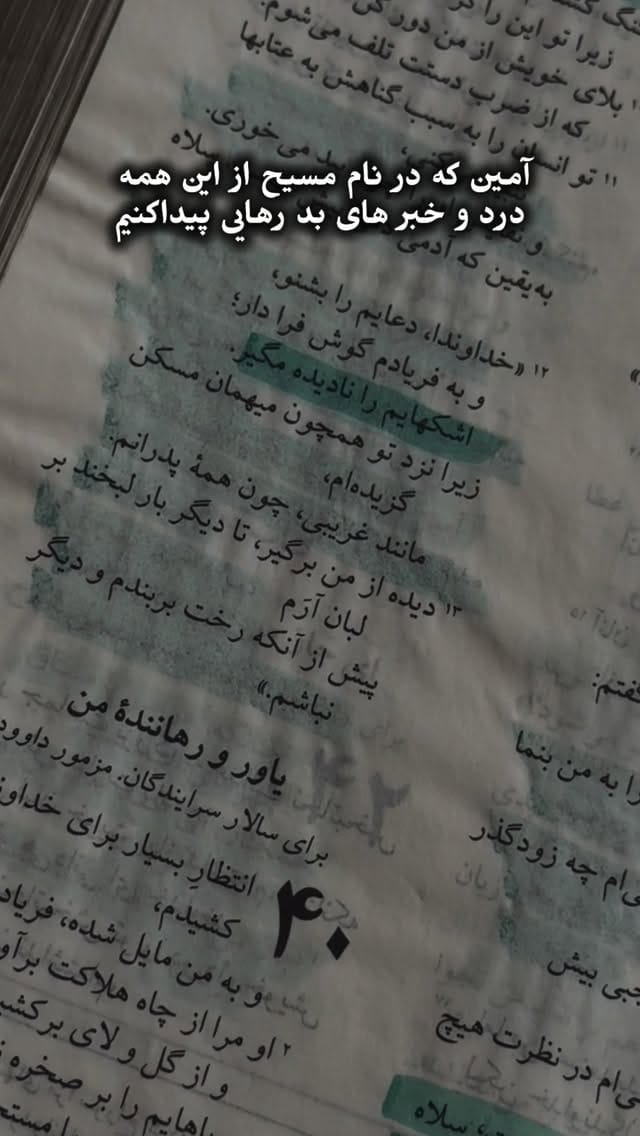 آمین که در نام مسیح از این همه
درد و خبر های بد رهایی پیداکنیم
زیرا تو این را
بلای خویش از من دور کن
که از ضرب دستت تلف می‌شوم.
۱۱ تو انسان را به سبب گناهش به عتابها
سلاه
به‌یقین که آدمی
۱۲ «خداوندا، دعایم را بشنو،
و به فریادم گوش فرا دار؛
اشکهایم را نادیده مگیر.
زیرا نزد تو همچون میهمان مسکن
گزیده‌ام،
مانند غریبی، چون همهٔ پدرانم.
۱۳ دیده از من برگیر، تا دیگر بار لبخند بر
لبان آرَم
پیش از آنکه رخت بربندم و دیگر
نباشم.»
یاور و رهانندهٔ من
برای سالار سرایندگان. مزمور داوود
۴۰ انتظارِ بسیار برای خداوند
کشیدم،
و به من مایل شده، فریاد
۲ او مرا از چاه هلاکت برآو
و از گل و لای برکشی
را بر صخره
گفتم:
را به من بنما
ی‌ام چه زودگذر
جبی بیش
ی‌ام در نظرت هیچ
سلاه